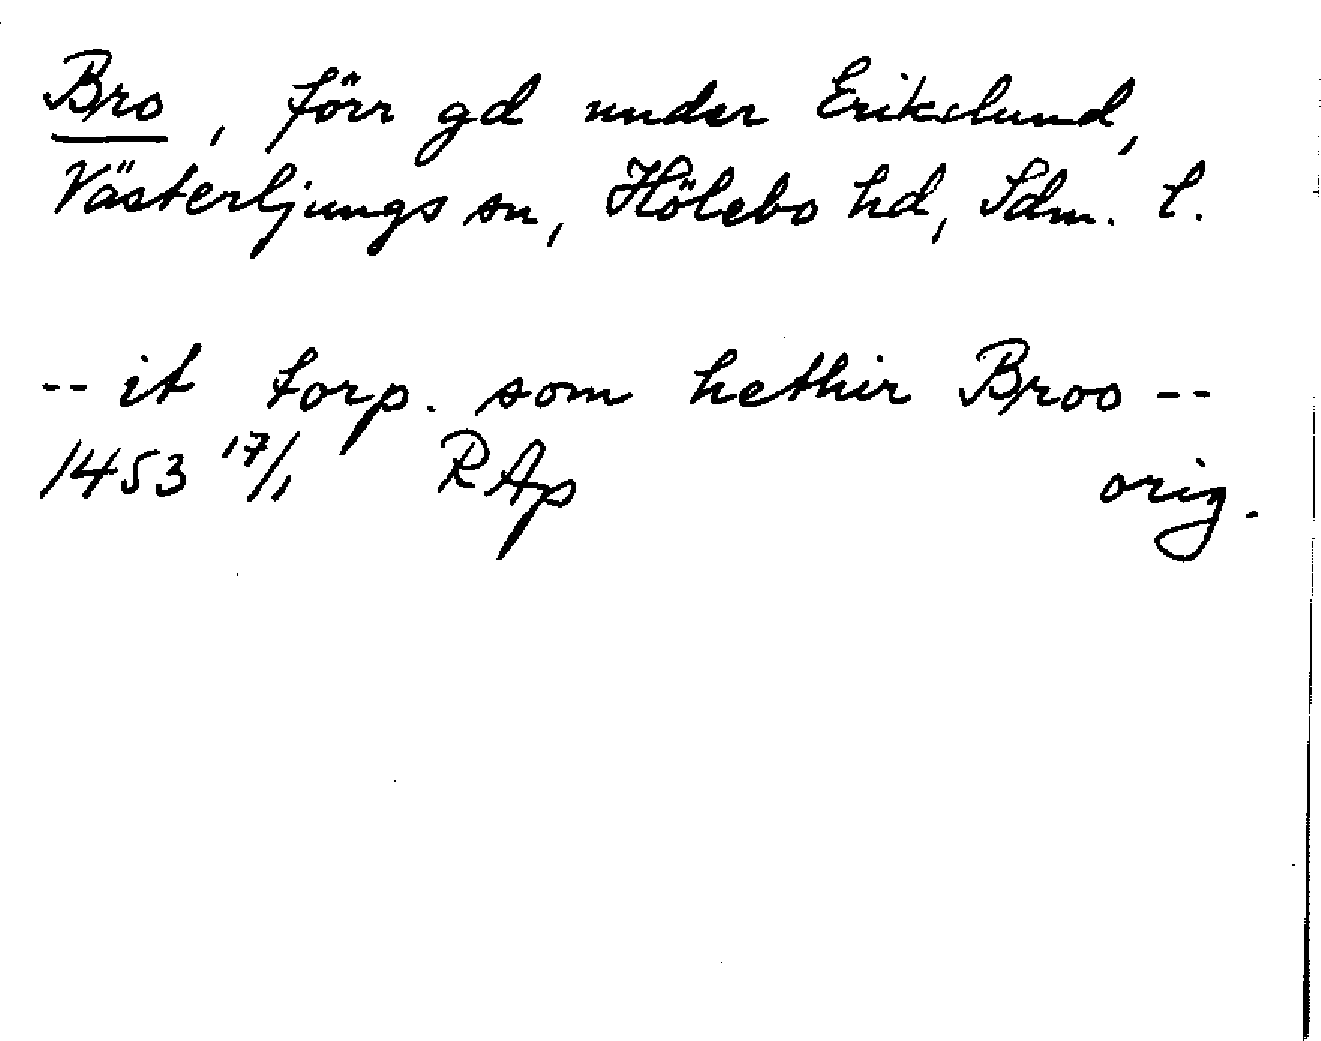 Bro, förr gd under Erikslund,
Västerljungs sn, Hölebo hd, Sdm. l.
-- it torp. som hethir Broo --
1453 17/1 RAp orig.